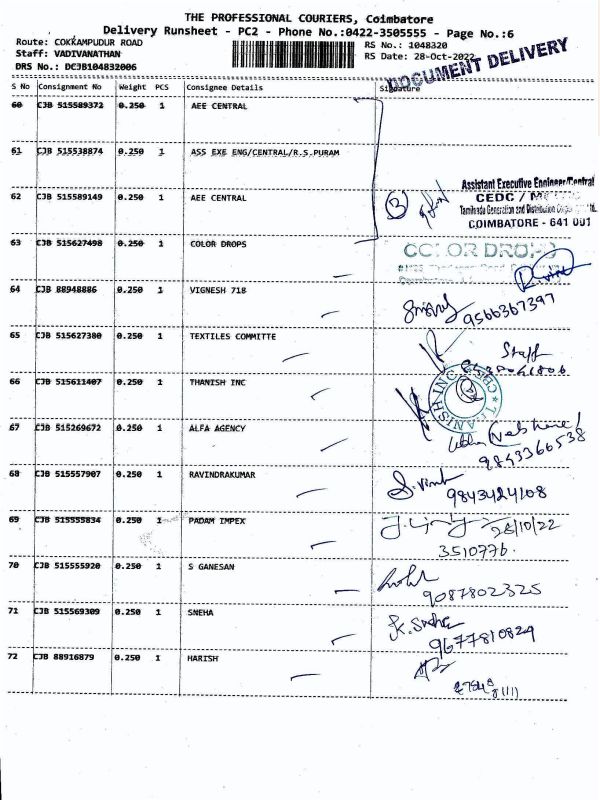 THE PROFESSIONAL COURIERS, Coimbatore
Delivery Runsheet - PC2 - Phone No.:0422-3505555 - Page No.:6
Route: COKKAMPUDUR ROAD RS No.: 1048320
Staff: VADIVANATHAN RS Date: 28-Oct-2022
DRS No.: DCJB104832006
DOCUMENT DELIVERY
S No Consignment No Weight PCS Consignee Details Signature
60 CJB 515589372 0.250 1 AEE CENTRAL
61 CJB 515538874 0.250 1 ASS EXE ENG/CENTRAL/R.S.PURAM
Assistant Executive Engineer/Central
62 CJB 515589149 0.250 1 AEE CENTRAL 3
CEDC /
Tamilnadu Generation and Distribution
COIMBATORE - 641 001
63 CJB 515627498 0.250 1 COLOR DROPS COLOR DROPS
64 CJB 88948886 0.250 1 VIGNESH 718
9566367397
65 CJB 515627380 0.250 1 TEXTILES COMMITTE
Staff
66 CJB 515611407 0.250 1 THANISH INC THANISH INC CBE
67 CJB 515269672 0.250 1 ALFA AGENCY
9843366538
68 CJB 515557907 0.250 1 RAVINDRAKUMAR
9843424108
69 CJB 515555834 0.250 1 PADAM IMPEX 28/10/22
3510776
70 CJB 515555920 0.250 1 S GANESAN
9087802325
71 CJB 515569309 0.250 1 SNEHA K. Sneha
9677810829
72 CJB 88916879 0.250 1 HARISH